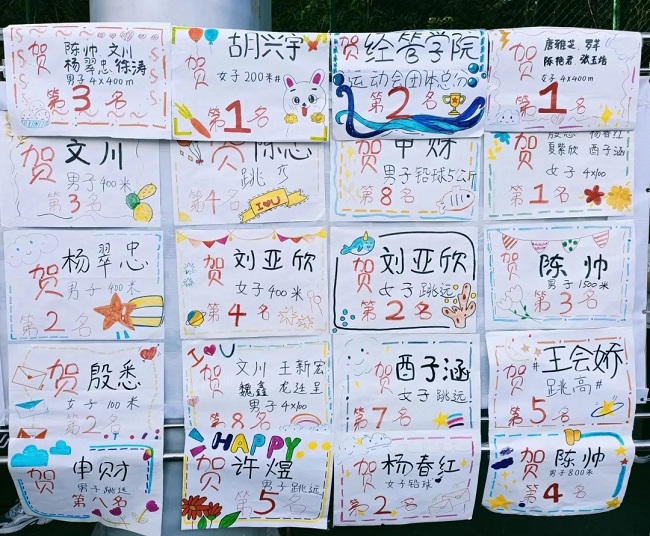 贺
陈帅 文川
杨翠忠 徐涛
男子4×400m
第3名
贺
胡兴宇
女子200米
第1名
贺
经管学院
运动会团体总分
第2名
贺
唐雅芝 罗芊
陈艳君 张玉培
女子4×400m
第1名
贺
文川
男子400米
第3名
贺
陈志
跳远
第4名
I♥U
贺
申财
男子铅球5公斤
第8名
贺
殷悉 杨春红
夏紫欣 酉子涵
女子4×100
第1名
贺
杨翠忠
男子400米
第2名
贺
刘亚欣
女子400米
第4名
贺
刘亚欣
女子跳远
第2名
贺
陈帅
男子1500米
第3名
贺
殷悉
女子100米
第2名
I♥U
贺
文川 王新宏
魏鑫 龙廷呈
男子4×100
第8名
贺
酉子涵
女子跳远
第7名
贺
王会娇
跳高
第5名
贺
申财
男子跳远
第八名
HAPPY
贺
许煜
男子跳远
第5名
贺
杨春红
女子铅球
第2名
贺
陈帅
男子800米
第4名